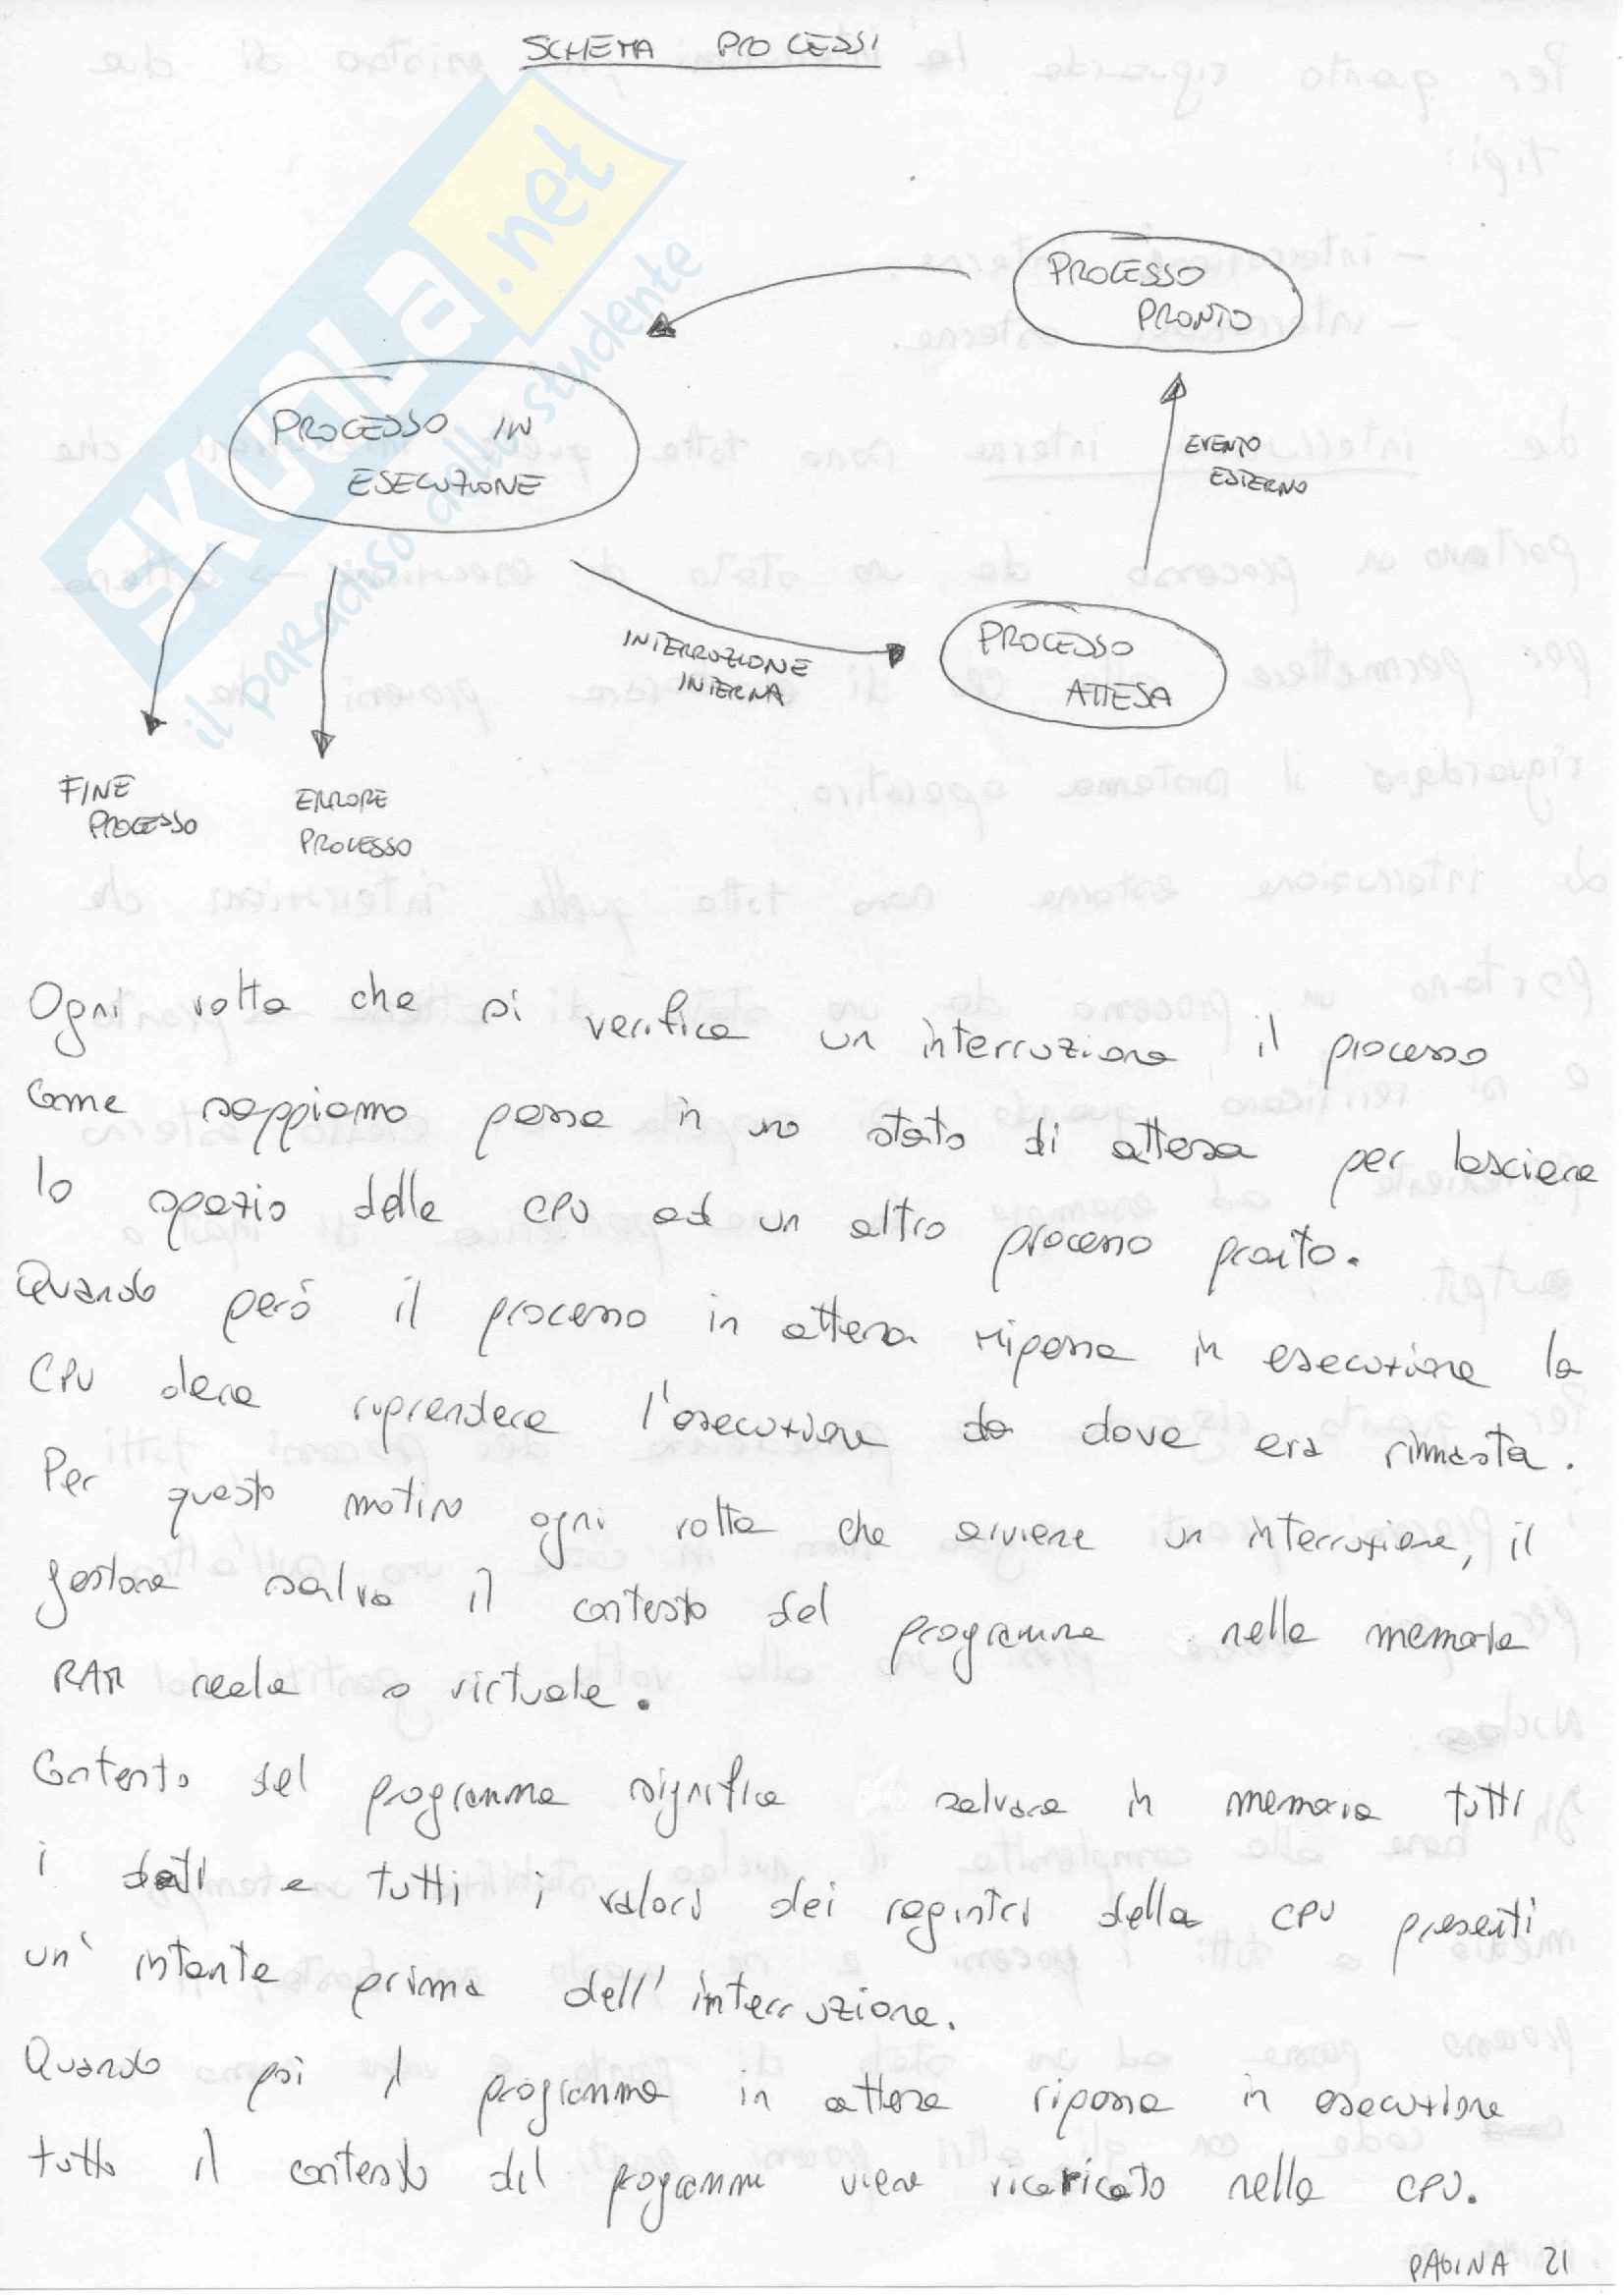 SCHEMA PROCESSI
SKUOLA.net
il paradiso dello studente
PROCESSO
PRONTO
PROCESSO IN
ESECUZIONE
EVENTO
ESTERNO
INTERRUZIONE
INTERNA
PROCESSO
ATTESA
FINE
PROCESSO
ERRORE
PROCESSO
Ogni volta che si verifica un interruzione il processo
come sappiamo passa in uno stato di attesa per lasciare
lo spazio della CPU ad un altro processo pronto.
Quando però il processo in attesa ripassa in esecuzione la
CPU deve riprendere l'esecuzione da dove era rimasta.
Per questo motivo ogni volta che avviene un interruzione, il
gestore salva il contesto del programma nella memoria
RAM reale o virtuale.
Contesto del programma significa salvare in memoria tutti
i dati e tutti i valori dei registri della CPU presenti
un' istante prima dell'interruzione.
Quando poi il programma in attesa ripassa in esecuzione
tutto il contesto del programma viene ricaricato nella CPU.
PAGINA 21